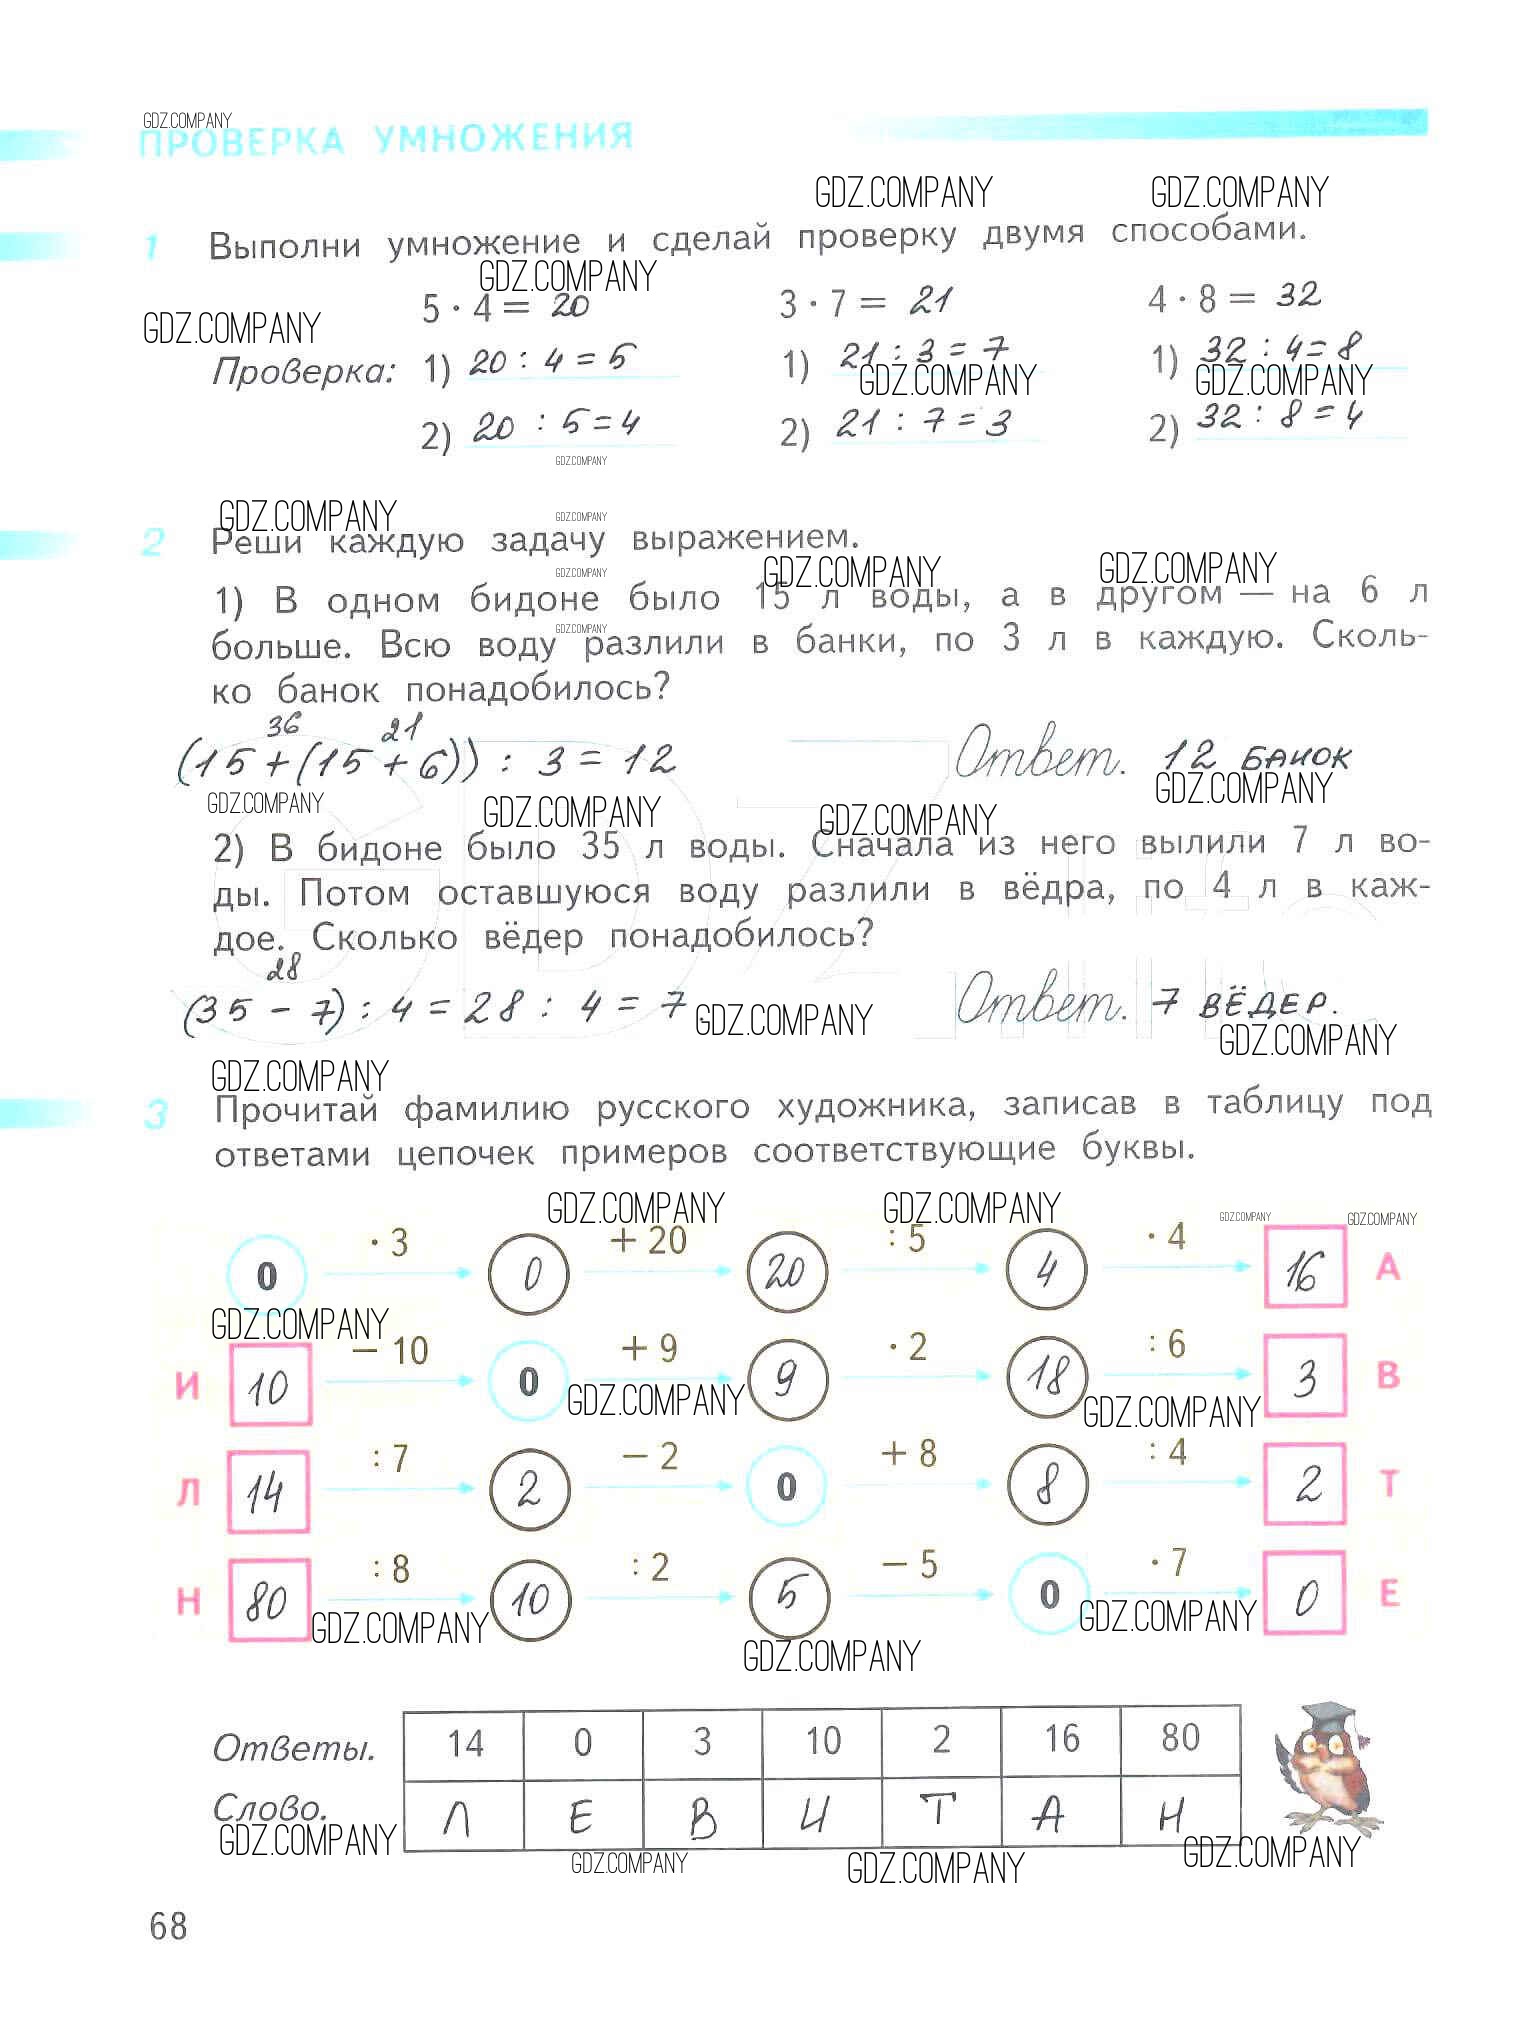 GDZ.COMPANY
ПРОВЕРКА УМНОЖЕНИЯ
GDZ.COMPANY GDZ.COMPANY
1 Выполни умножение и сделай проверку двумя способами.
GDZ.COMPANY
5 · 4 = 20 3 · 7 = 21 4 · 8 = 32
GDZ.COMPANY
Проверка: 1) 20 : 4 = 5 1) 21 : 3 = 7 1) 32 : 4 = 8
GDZ.COMPANY GDZ.COMPANY
2) 20 : 5 = 4 2) 21 : 7 = 3 2) 32 : 8 = 4
GDZ.COMPANY
GDZ.COMPANY GDZ.COMPANY
2 Реши каждую задачу выражением.
GDZ.COMPANY GDZ.COMPANY GDZ.COMPANY
1) В одном бидоне было 15 л воды, а в другом — на 6 л
GDZ.COMPANY
больше. Всю воду разлили в банки, по 3 л в каждую. Сколь-
ко банок понадобилось?
36 21
(15 + (15 + 6)) : 3 = 12 Ответ. 12 банок
GDZ.COMPANY GDZ.COMPANY GDZ.COMPANY GDZ.COMPANY
2) В бидоне было 35 л воды. Сначала из него вылили 7 л во-
ды. Потом оставшуюся воду разлили в вёдра, по 4 л в каж-
дое. Сколько вёдер понадобилось?
28
(35 - 7) : 4 = 28 : 4 = 7. Ответ. 7 вёдер.
GDZ.COMPANY GDZ.COMPANY
GDZ.life
GDZ.COMPANY
3 Прочитай фамилию русского художника, записав в таблицу под
ответами цепочек примеров соответствующие буквы.
GDZ.COMPANY GDZ.COMPANY GDZ.COMPANY GDZ.COMPANY
· 3 + 20 : 5 · 4
0 0 20 4 16 А
GDZ.COMPANY
− 10 + 9 · 2 : 6
И 10 0 9 18 3 В
GDZ.COMPANY GDZ.COMPANY
: 7 − 2 + 8 : 4
Л 14 2 0 8 2 Т
: 8 : 2 − 5 · 7
Н 80 10 5 0 0 Е
GDZ.COMPANY GDZ.COMPANY
GDZ.COMPANY
Ответы. 14 0 3 10 2 16 80
Слово. Л Е В И Т А Н
GDZ.COMPANY GDZ.COMPANY GDZ.COMPANY GDZ.COMPANY
68